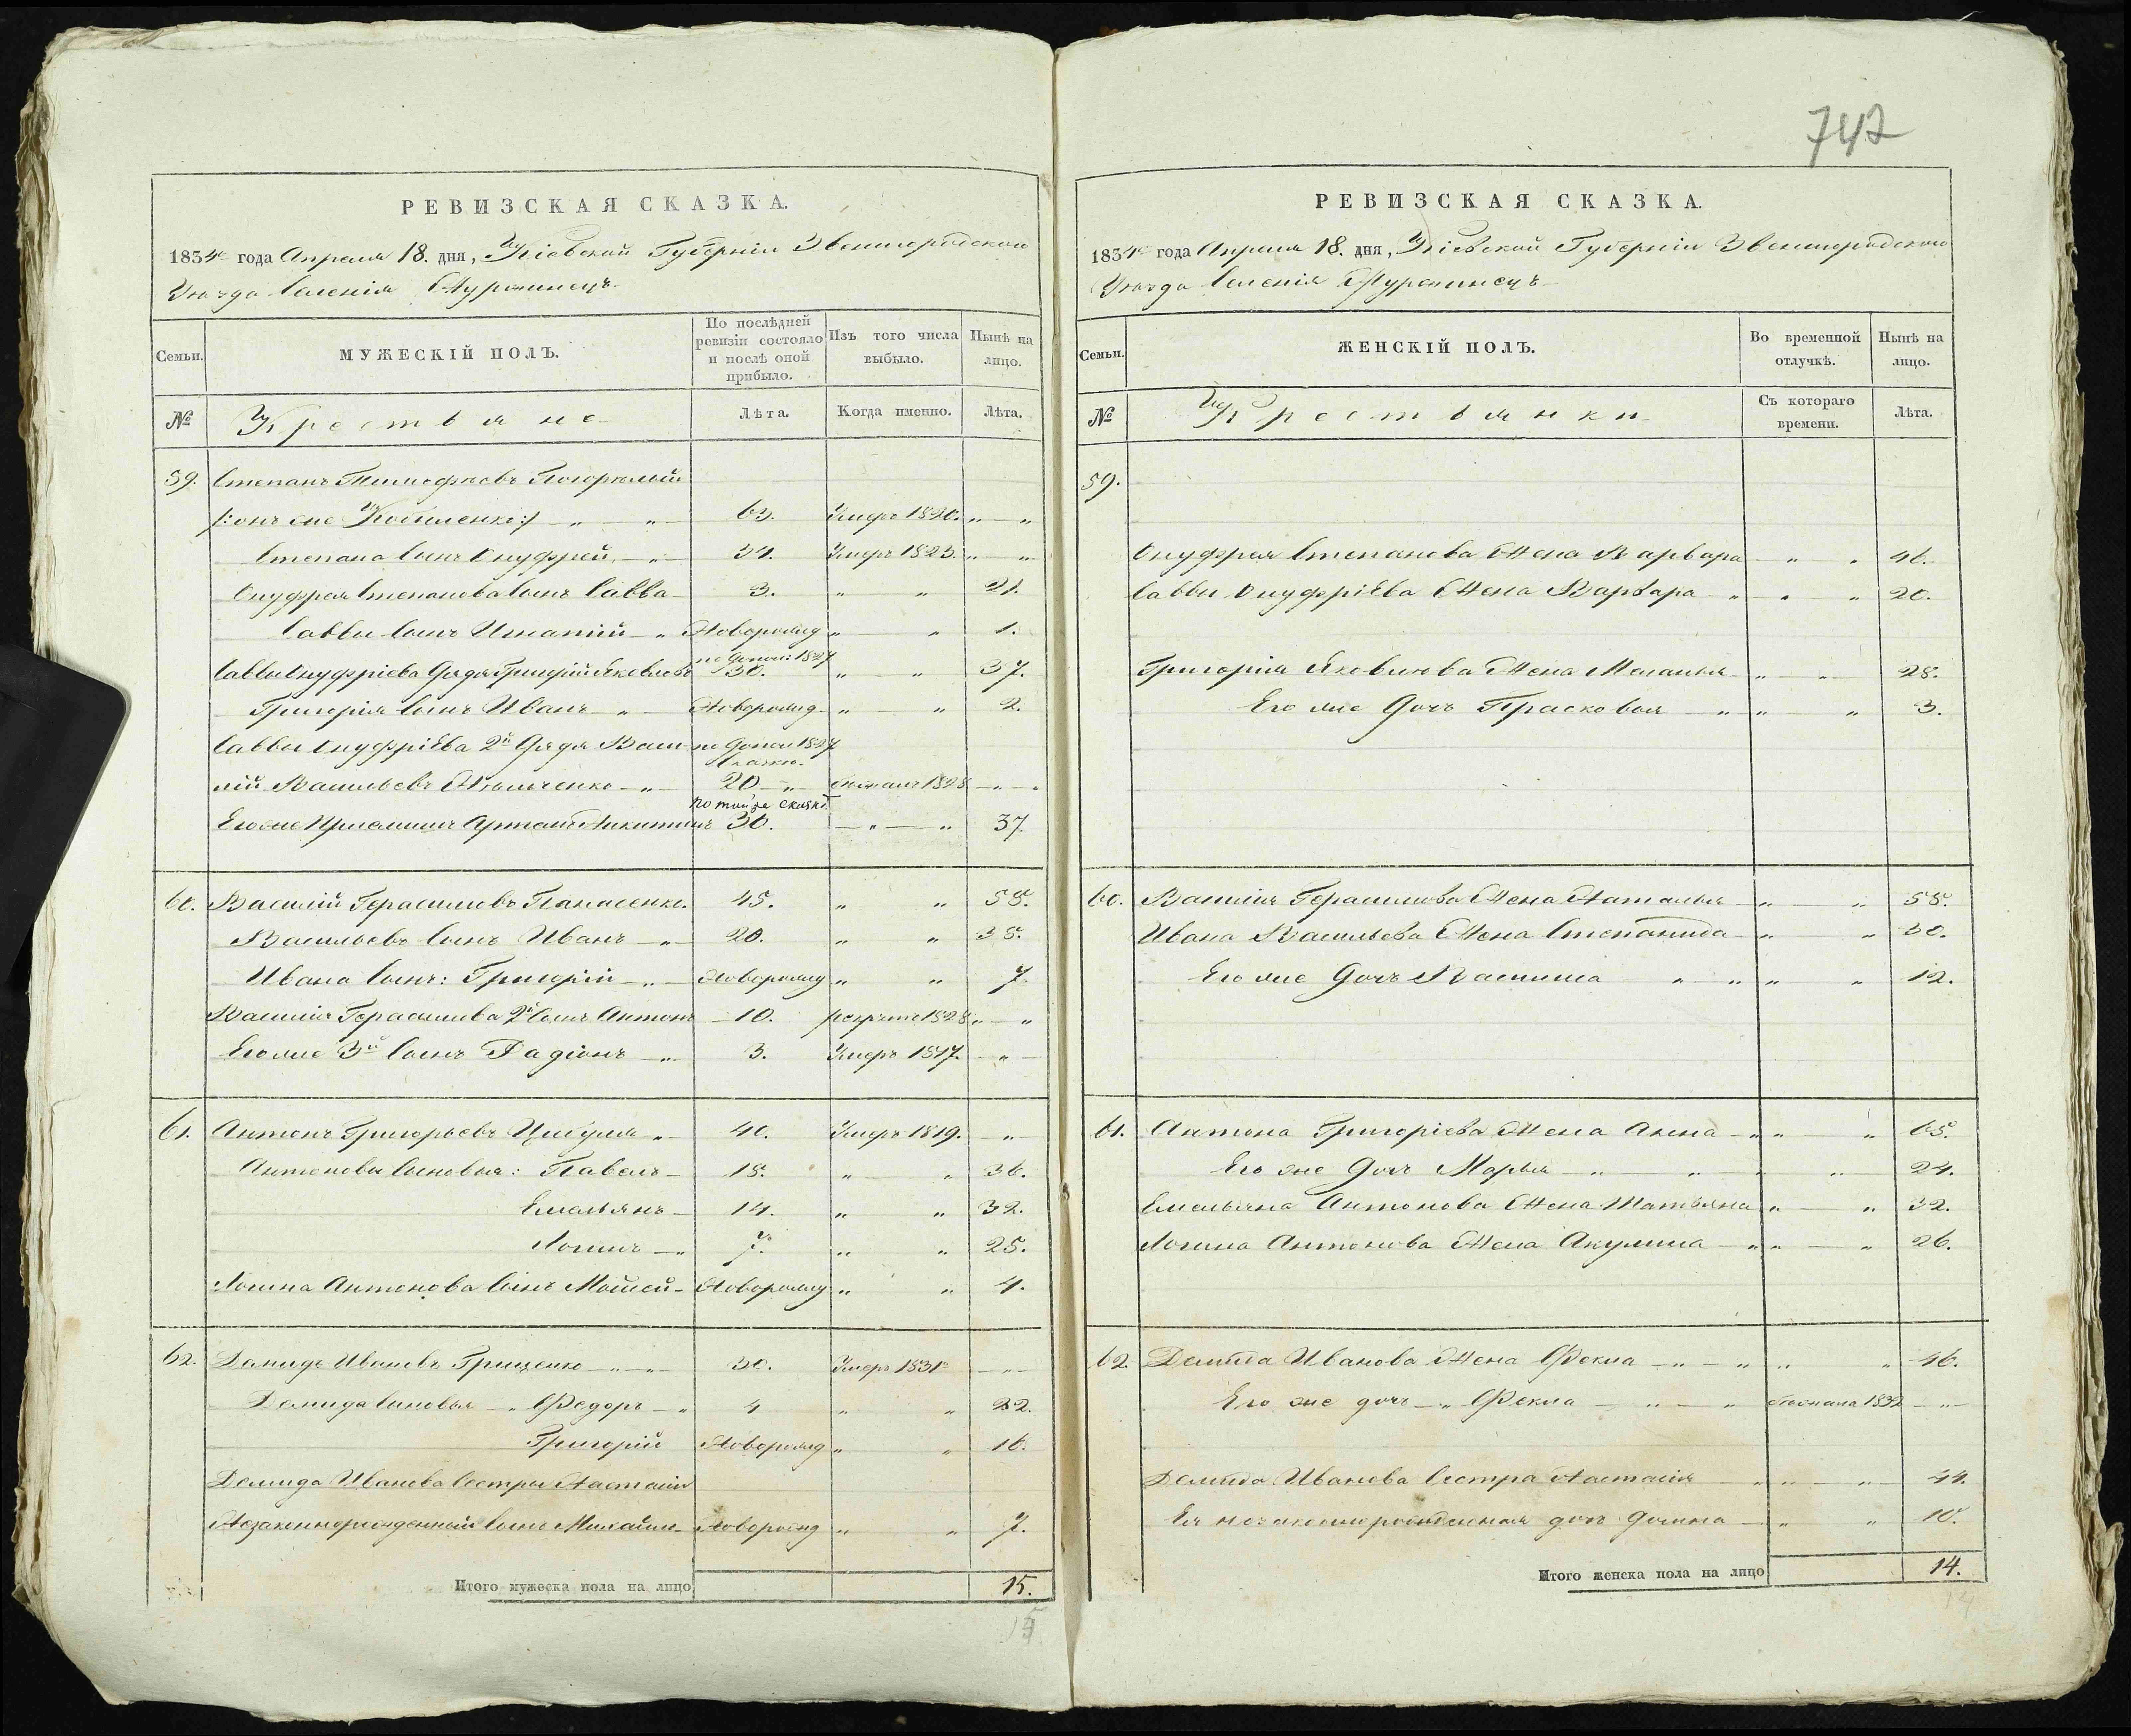 742
РЕВИЗСКАЯ СКАЗКА.
1834 года Апреля 18. дня, Кіевской Губерніи Звенигородскаго
Уезда Селенія Журжинецъ
Семьи.
МУЖЕСКІЙ ПОЛЪ.
По послѣдней ревизіи состояло и послѣ оной прибыло.
Изъ того числа выбыло.
Нынѣ на лицо.
№
Крестьяне
Лѣта.
Когда именно.
Лѣта.
59. Степанъ Тимофеевъ Погорелый
/:онъ же Кобыленко:/ " " 63. Умеръ 1820. " "
Степана Сынъ Онуфрей " 34. Умеръ 1823. " "
Онуфрея Степанова Сынъ Савва 3. " " 21.
Саввы Сынъ Ипатій " Новорожд " " 1.
Саввы Онуфріева Дядя Григорій Яковлевъ по допол: 1827 30. " " 37.
Григорія Сынъ Иванъ " Новорожд " " 2.
Саввы Онуфріева 2й Дядя Васи- по допол 1827
лій Васильевъ 20 " 1828 " "
по той же сказкѣ
Его же Приемышъ Артемъ Никитинъ 30. " " 37.
60. Василій Герасимовъ Панасенко. 45. " " 58.
Васильевъ Сынъ Иванъ " 20. " " 35.
Ивана Сынъ: Григорій " Новорожд " " 7
Василія Герасимова 2й Сынъ Антонъ 10. рекрутъ 1828 " "
Его же 3й Сынъ Радіонъ " 3. Умеръ 1817. "
61. Антонъ Григорьевъ Цибуля " 40. Умеръ 1819. "
Антоновы Сыновья: Павелъ 18. " " 36.
Емельянъ 14. " " 32.
Логинъ " 7. " " 25.
Логина Антонова Сынъ Мойсей Новорожд " " 4.
62. Демидъ Ивановъ Гриценко " " 30. Умеръ 1831 "
Демида Сыновья " Федоръ " 4 " " 22.
Григорій Новорожд " " 16.
Демида Иванова Сестры Настасіи
Незаконнорожденный Сынъ Михайло Новорожд " " 7.
Итого мужеска пола на лицо 15.
15
РЕВИЗСКАЯ СКАЗКА.
1834 года Апреля 18. дня, Кіевской Губерніи Звенигородскаго
Уезда Селенія Журжинецъ
Семьи.
ЖЕНСКІЙ ПОЛЪ.
Во временной отлучкѣ.
Нынѣ на лицо.
№
Крестьянки
Съ котораго времени.
Лѣта.
59.
Онуфрея Степанова Жена Варвара " " 46.
Саввы Онуфріева Жена Варвара " " " 20.
Григорія Яковлева Жена Меланья " " 28.
Его же Дочь Прасковья " " " 3.
60. Василія Герасимова Жена Наталья " " 58.
Ивана Васильева Жена Степанида " " 30.
Его же Дочь Василиса " " " " 12.
61. Антона Григоріева Жена Анна " " " 65.
Его же Дочь Марья " " " " 24.
Емельяна Антонова Жена Татьяна " " 32.
Логина Антонова Жена Акулина " " " 26.
62 Демида Иванова Жена Фекла " " " " 46.
Его же дочь " Фекла " " 1832 "
Демида Иванова Сестра Настасія " " " 44.
Ея незаконнорожденная дочь " " 10.
Итого женска пола на лицо 14.
14